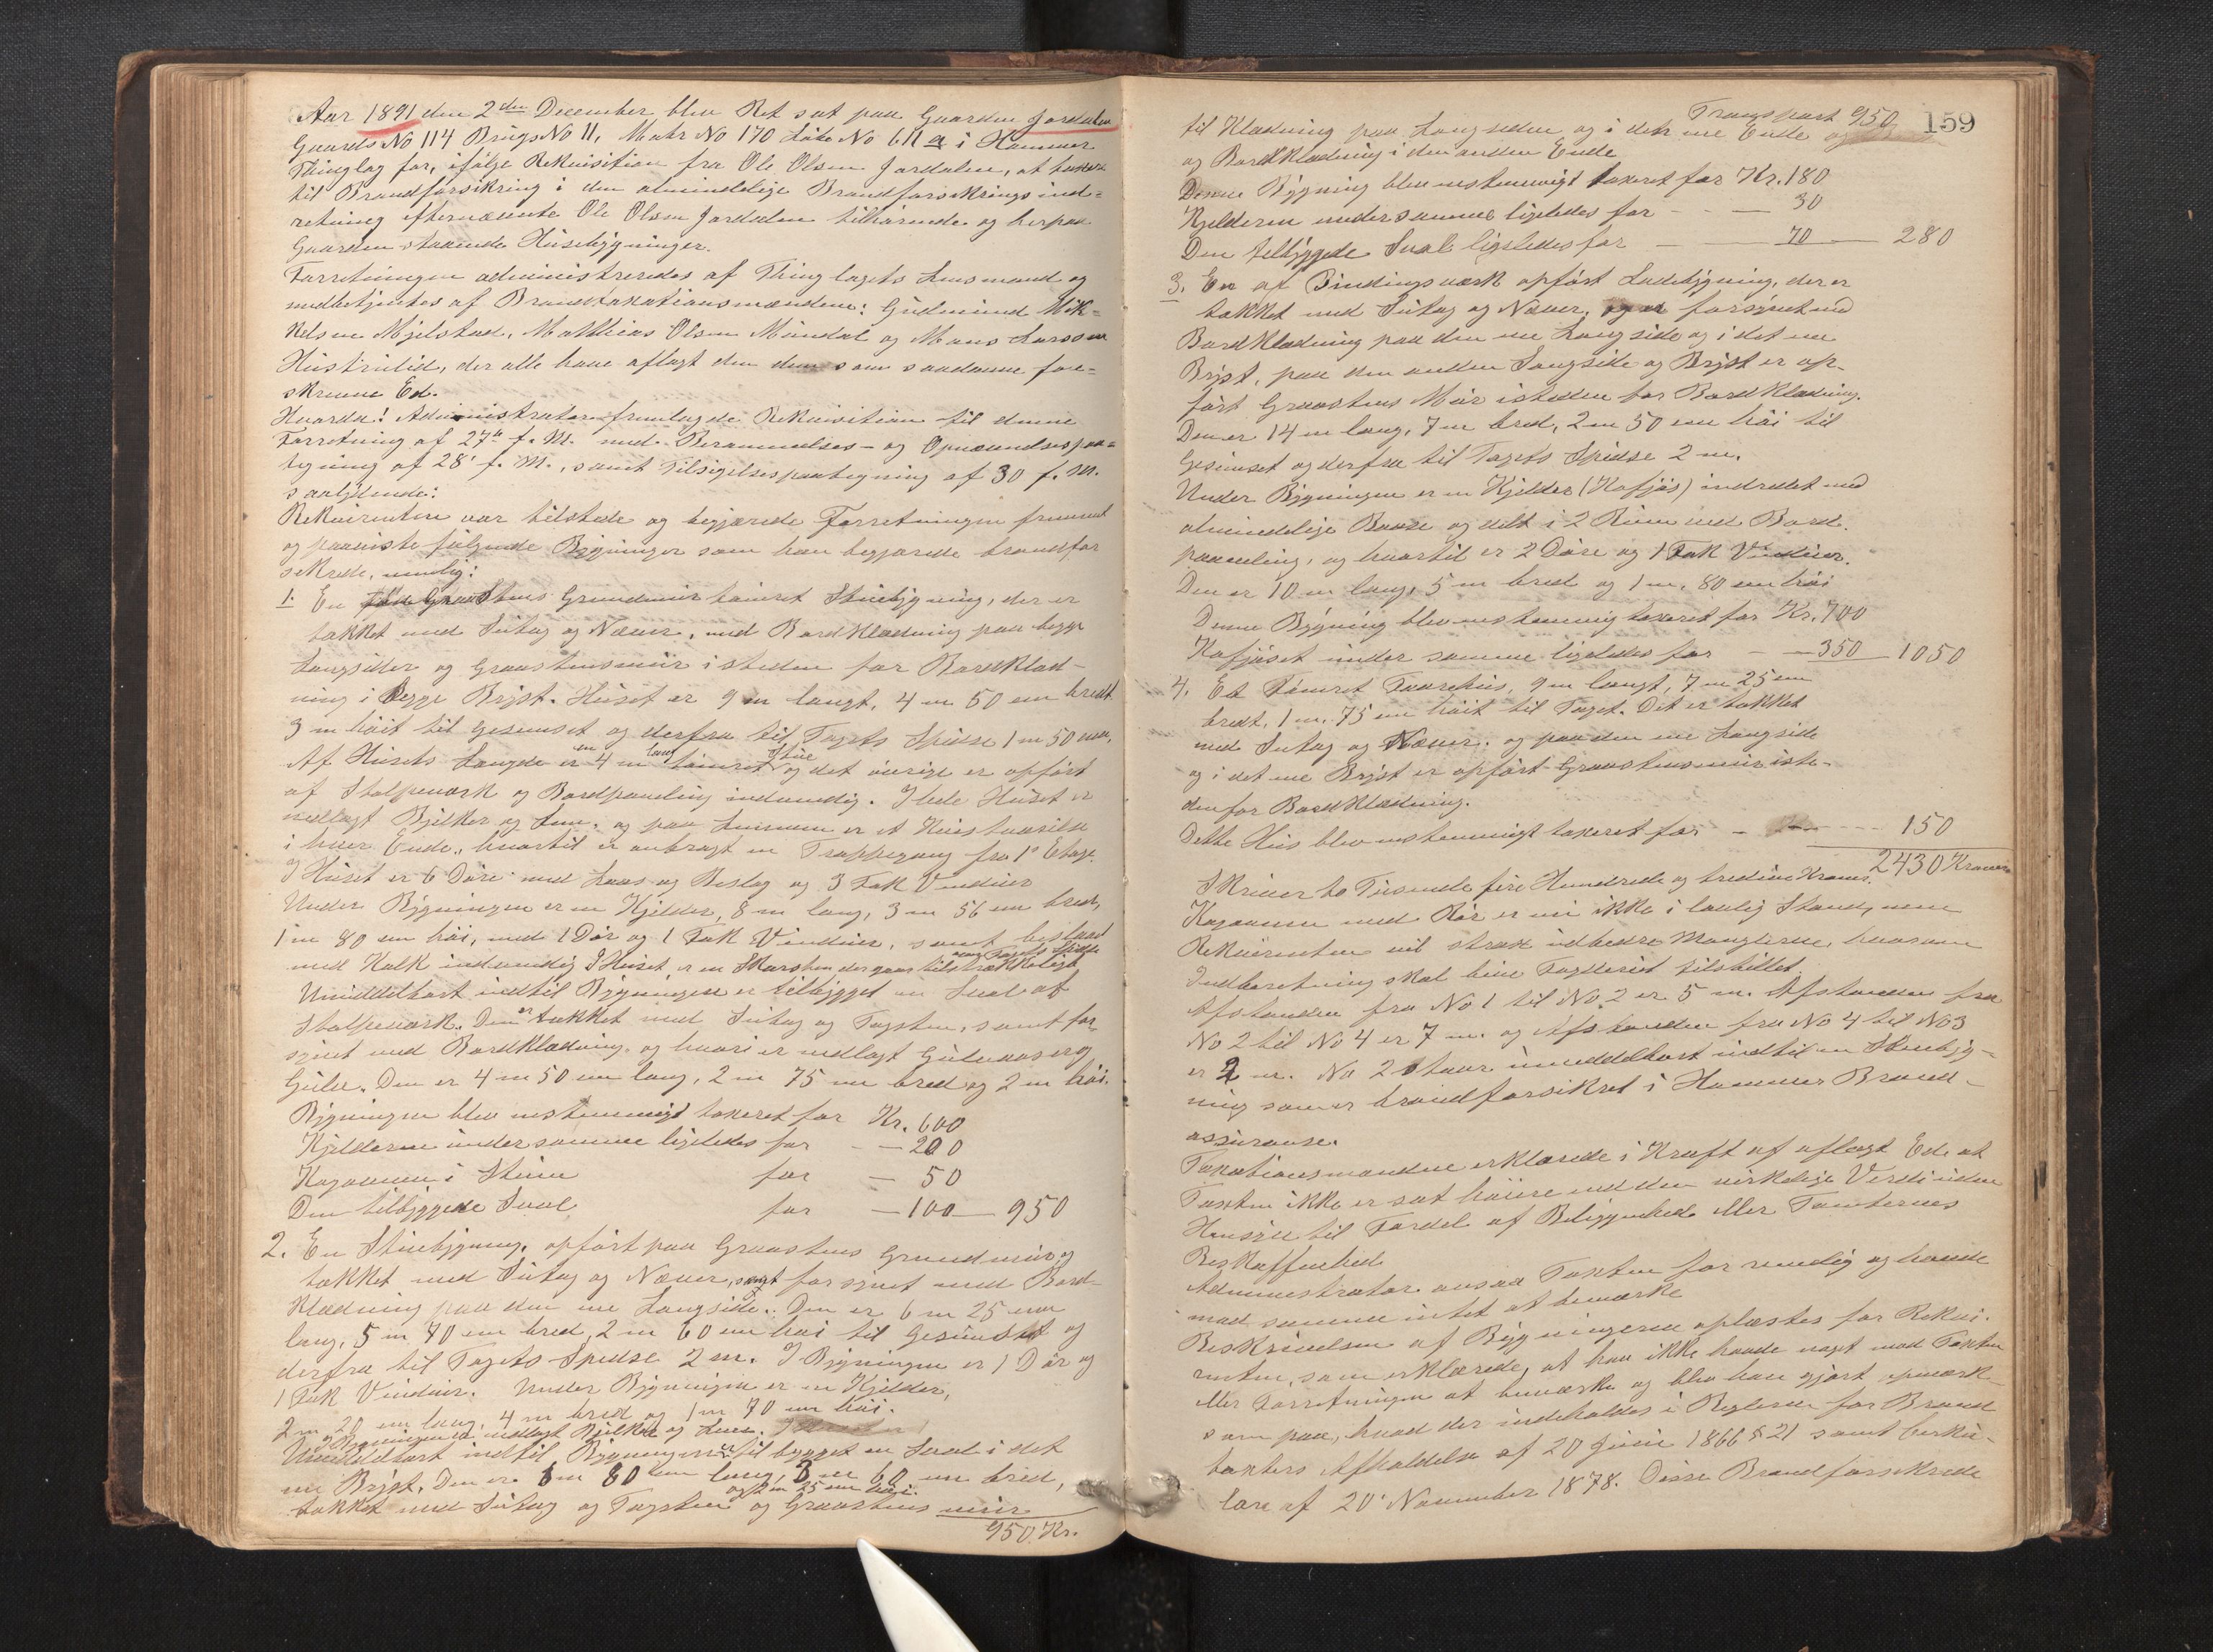 Aar 1891 den 2den December blev Ret sat paa Gaarden Jordalen
Gaards No 114 Brugs No 11, Matr No 170 Løbe No 611 a i Hammer
Thinglag for, ifølge Rekvisition fra Ole Olsen Jordalen, at taxere
til Brandforsikring i den almindelige Brandforsikringsind-
retning efternævnte Ole Olsen Jordalen tilhørende og herpaa
Gaarden staaende Husebygninger.
Forretningen administreredes af Thinglagets Lensmand og
medbetjentes af Brandtaxationsmændene: Gudmund Mik-
kelsen Mjelstad, Mathias Olsen Mundal og Mons Larssen
Hustrulid, der alle have aflagt den dem som saadanne fore-
skrevne Ed.
Hvorda! Administrator fremlagde Rekvisition til denne
Forretning af 27de f. M. med Berammelses- og Opnævnelsespaa-
tegning af 28' f. M., samt Tilsigelsespaategning af 30 f. M.
saalydende:
Rekvirenten var tilstede og begjærede Forretningen fremmet
og paaviste følgende Bygninger som han begjærede brandfor
sikrede, nemlig:
1. En paa Graastens Grundmur tømret Stuebygning, der er
tækket med Sutag og Næver, med Bordklædning paa begge
Langsider og Graastensmur isteden for Bordklæd-
ning i begge Bryst. Huset er 9 m langt, 4 m 50 cm bredt
3 m høit til Gesimset og derfra til Tagets Spidse 1 m 50 cm,
Af Husets Længde er en 4 m lang tømret Stue og det øvrige er opført
af Stolpeværk og Bordpaneling indvendig. I hele Huset er
nedlagt Bjelker og Lem. og paa Lemmen er et
i hver Ende, hvortil er anbragt en Trappegang fra 1' Etage.
I Huset er 6 Døre med Laas og Beslag og 3 Fak Vinduer
Under Bygningen er en Kjelder, 8 m lang, 3 m 56 cm bred,
1 m 80 cm høi, med 1 Dør og 1 Fak Vinduer, samt
med Kalk indvendig I Huset er en Skorsten der gaar tilstrækkeligt over Tagets Spidse
Umiddelbart indtil Bygningen er tilbygget en Sval af
Stolpeværk. Den er tækket med Sutag og Tagsten, samt for-
synet med Bordklædning, og hvori er nedlagt Gulvaaser og
Gulv. Den er 4 m 50 cm lang, 2 m 75 cm bred og 2 m høi.
Bygningen blev enstemmigt taxeret for Kr. 600
Kjelderen under samme ligeledes for — 200
Kogovnen i Stuen for — 50
Den tilbyggede Sval for — 100 — 950
2. En Stuebygning, opført paa Graastens Grundmur og
tækket med Sutag og Næver, samt forsynet med Bord-
klædning paa den ene Langside. Den er 6 m 25 cm
lang, 5 m 70 cm bred, 2 m 60 cm høi til Gesimset og
derfra til Tagets Spidse 2 m. I Bygningen er 1 Dør og
1 Fak Vinduer. Under Bygningen er en Kjelder,
2 m 20 cm lang, 4 m bred og 1 m 70 cm høi.
I Bygningen er nedlagt Bjelker og Lem.
Umiddelbart indtil Bygningen er tilbygget en Sval i det
ene Bryst. Den er 5 m 80 cm lang, 3 m 60 cm bred,
og 2 m 25 cm høi.
tækket med Sutag og Tagsten og Graastens mur
950 Kr.
Transport 950 159
til Klædning paa Langsiden og i den ene Ende og
og Bordklædning i den anden Ende
Denne Bygning blev enstemmigt taxeret for Kr. 180
Kjelderen under samme ligeledes for — 30
Den tilbyggede Sval ligeledes for — 70 — 280
3. En af Bindingsværk opført Ladebygning, der er
tækket med Sutag og Næver, og er forsynet med
Bordklædning paa den ene Langside og i det ene
Bryst, paa den anden Langside og Bryst er op-
ført Graastens Mur isteden for Bordklædning.
Den er 14 m lang, 7 m bred, 2 m 50 cm høi til
Gesimset og derfra til Tagets Spidse 2 m.
Under Bygningen er en Kjelder (Kofjøs) indredet med
almindelige Baase og delt i 2 Rum med Bord-
paaneling, og hvortil er 2 Døre og 1 Fak Vinduer.
Den er 10 m lang, 5 m bred og 1 m. 80 cm høi
Denne Bygning blev enstemmig taxeret for Kr. 700
Kofjøset under samme ligeledes for — 350 — 1050
4. Et tømret Faarehus, 9 m langt, 7 m 25 cm
bredt, 1 m. 75 cm høit til Taget. Det er tækket
med Sutag og Næver. og paa den ene Langside
og i det ene Bryst er opført Graastensmur iste-
denfor Bordklædning.
Dette Hus blev enstemmigt taxeret for — 150
2430 Kroner
Skriver to Tusende fire Hundrede og tredive Kroner.
Kogovnen med Rør er nu ikke i lovlig Stand, men
Rekvirenten vil strax udbedre Manglerne, hvorom
Indberetning skal blive Fogderiet tilstillet
Afstanden fra No 1 til No 2 er 5 m. Afstanden fra
No 2 til No 4 er 7 m. og Afstanden fra No 4 til No 3
er 2 m. No 2 staar umiddelbart indtil en Stuebyg-
ning som er brandforsikret i Hammer Brand-
assurance.
Taxationsmændene erklærede i Kraft af aflagt Ed, at
Taxten ikke er sat høiere end den virkelige Verdi uden
Hensyn til Fordel af Beliggenhed eller Tomternes
Beskaffenhed
Administrator ansaa Taxten for rimelig og havde
mod samme intet at bemærke
Beskrivelsen af Bygningerne oplæstes for Rekvi-
renten, som erklærede, at han ikke havde noget mod Taxten
eller Forretningen at bemærke og blev han gjort opmærk-
som paa, hvad der indeholdes i Reglerne for Brand
taxters Afholdelse af 20 Juni 1866 § 21 samt Cirku-
lære af 20' November 1878. Disse Brandforsikrede